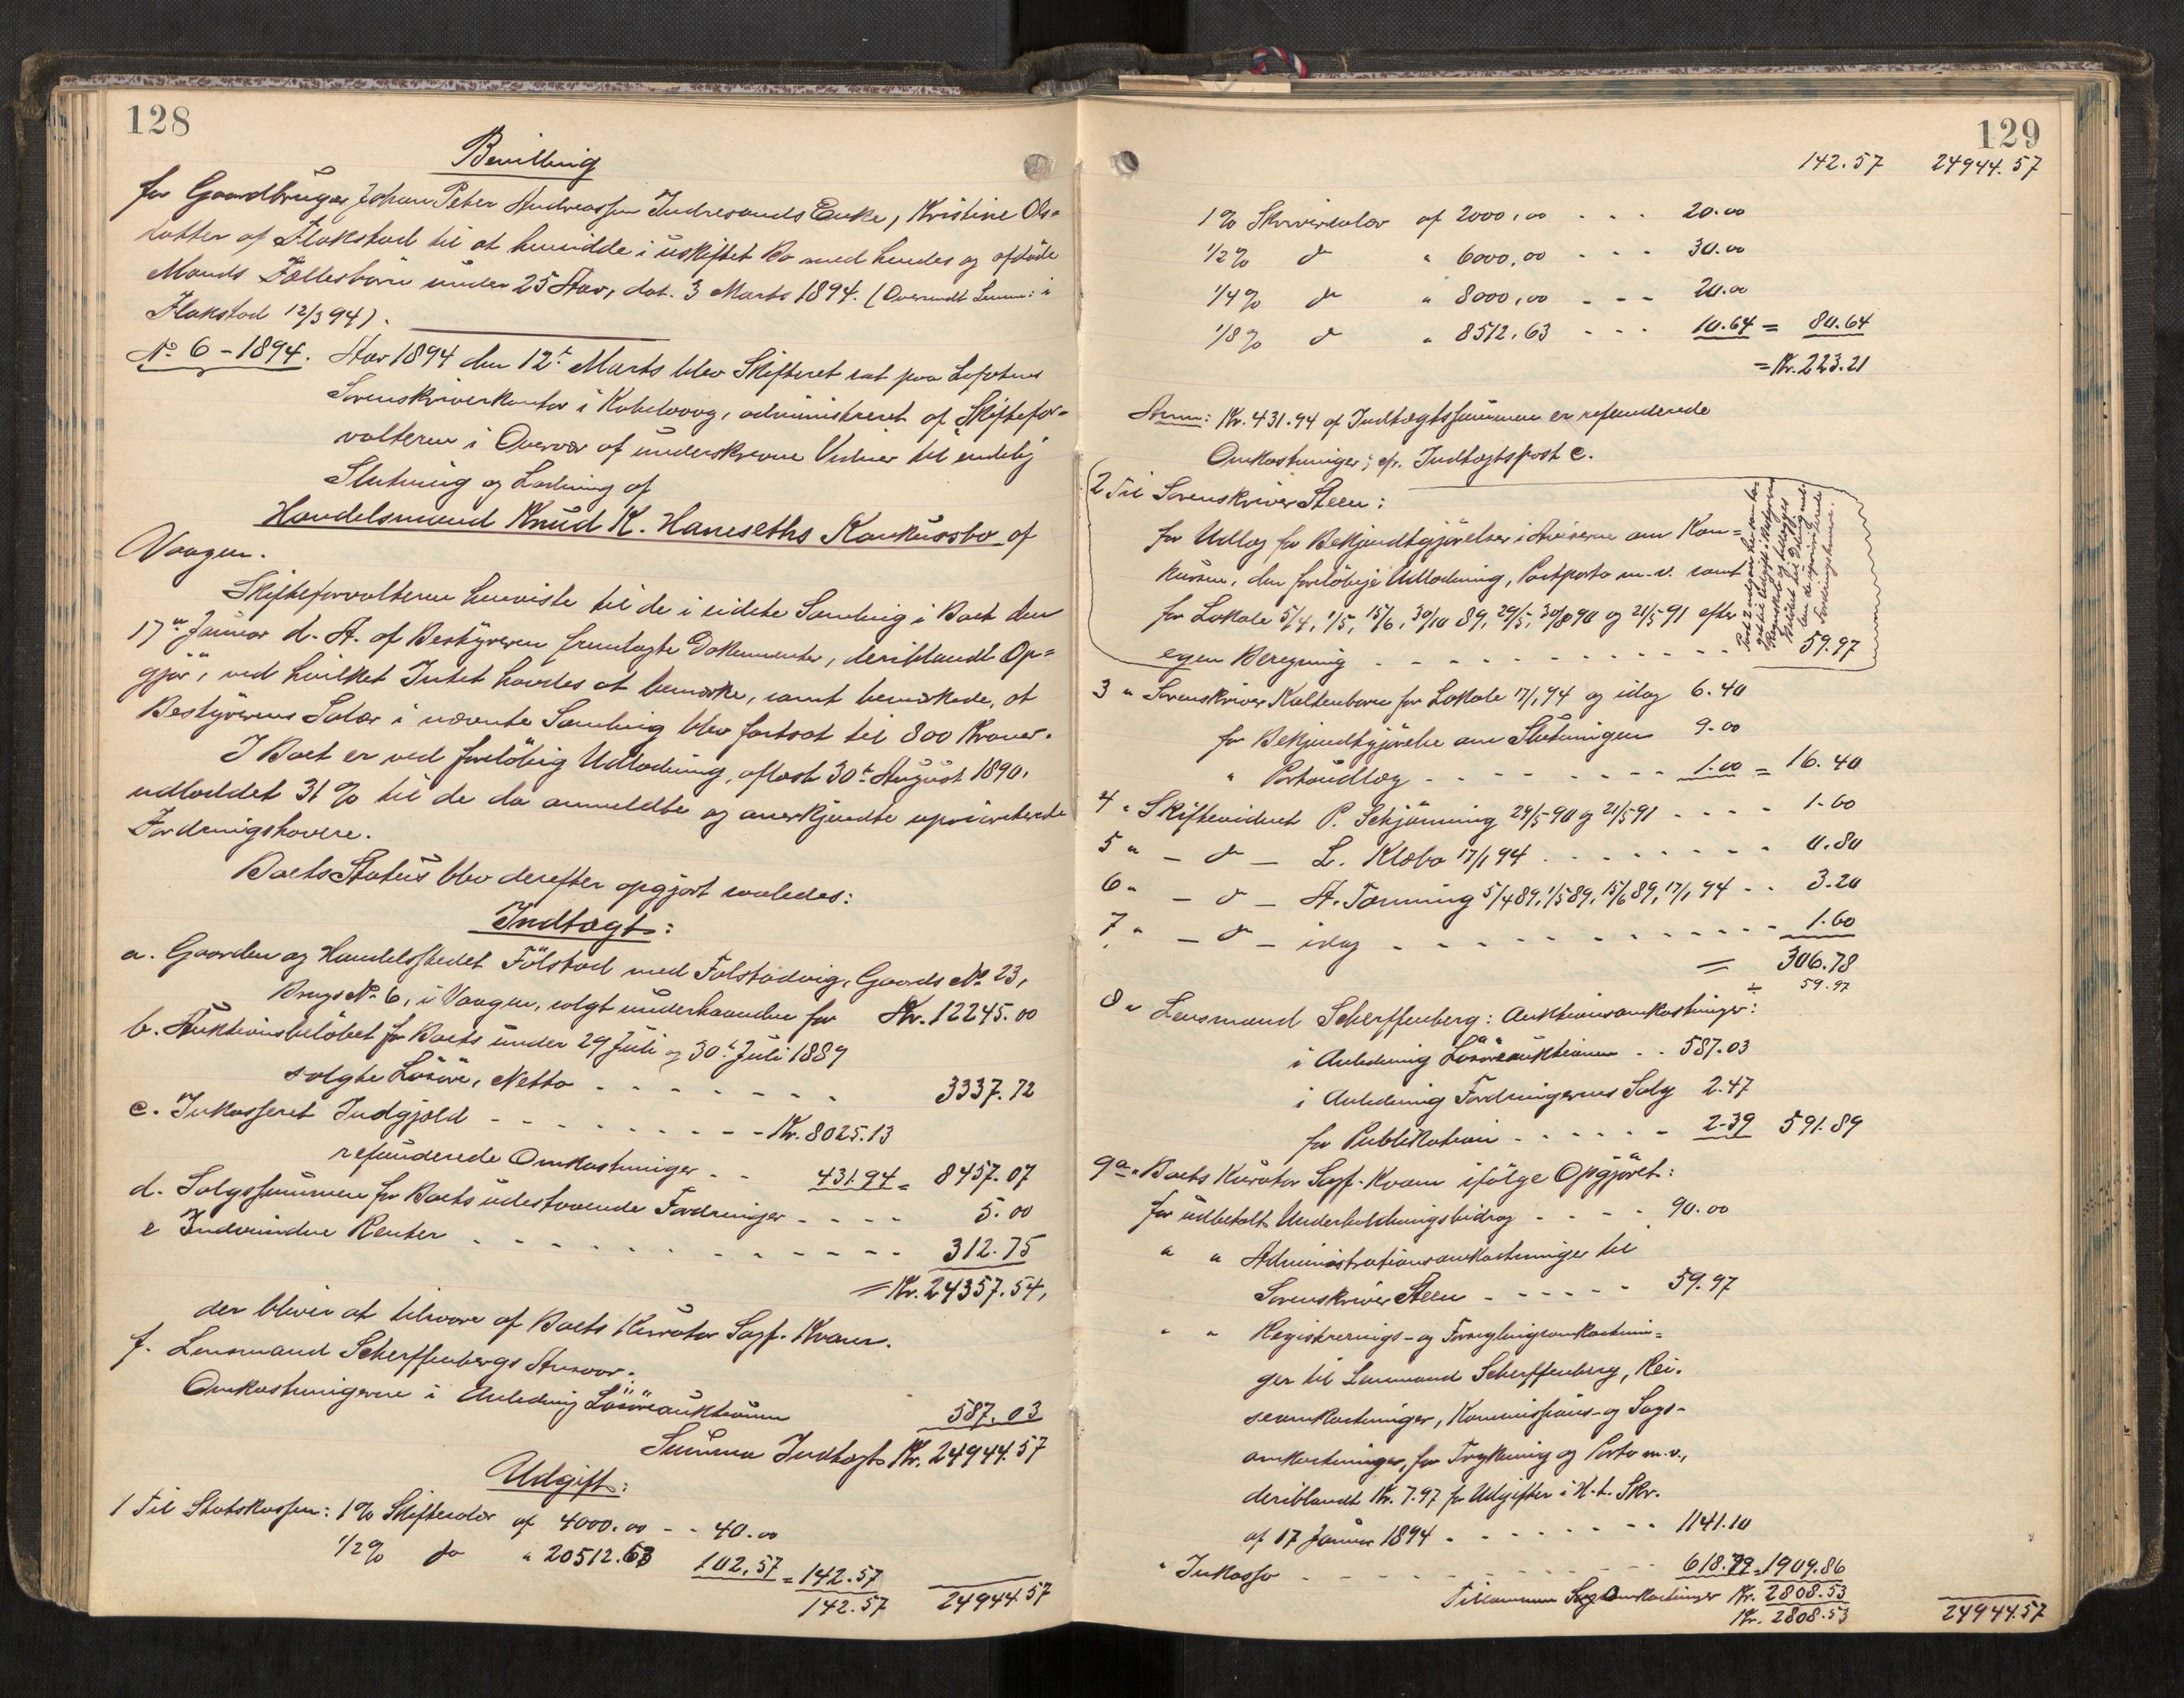 128
Bevilling
for Gaardbruger Johan Peter Andreassen Indresands Enke, Kristine Ols=
datter af Flakstad til at hensidde i uskiftet Bo med hendes og afdöde
Mands Fællesbörn under 25 Aar, dat. 3 Marts 1894. (Oversendt Lensm: i
Flakstad 12/3 94).
No 6 - 1894. Aar 1894 den 12te Marts blev Skifteret sat paa Lofotens
Sorenskriverkontor i Kabelvaag, administreret af Skiftefor=
valteren i Overvær af underskrevne Vidner til endelig
Slutning og Lodning af
Handelsmand Knud K. Hanseths Konkursbo af
Vaagen.
Skifteforvalteren henviste til de i sidste Samling i Boet den
17de Januar d. A. af Bestyreren fremlagte Dokumenter, deriblandt Op=
gjör, ved hvilket Intet havdes at bemærke, samt bemærkede, at
Bestyrerens Salær i nævnte Samling blev fastsat til 800 Kroner.
I Boet er ved foreløbig Udlodning, aflæst 30te August 1890,
udloddet 31 % til de da anmeldte og anerkjendte uprioriterede
Fordringshavere.
Boets Status blev derefter opgjort saaledes:
Indtægt:
a. Gaarden og Handelsstedet Fölstad med Fölstadvig, Gaards No 23,
Brugs No 6, i Vaagen, solgt underhaanden for Kr. 12245.00
b. Auktionsbelöbet for Boets under 29 Juli og 30te Juli 1889
solgte Lösöre, Netto - - - - - - - 3337.72
c. Inkasseret Indgjæld - - - - - - - - - Kr. 8025.13
refunderede Omkostninger - - 431.94 = 8457.07
d. Salgssummen for Boets udestaaende Fordringer - - - - 5.00
e Indvundne Renter - - - - - - - - - - - - 312.75
= Kr. 24357.54,
der bliver at tilsvare af Boets Kurator Sagf. Kvam.
f. Lensmand Scherffenbergs Ansvar:
Omkostningerne i Anledning Lösöreauktionen 587.03
Summa Indtægt Kr. 24944.57
Udgift:
1 Til Statskassen: 1 % Skiftesalær af 4000.00 - - 40.00
1/2 % do " 20512.63 102.57 = 142.57
142.57 24944.57
129
142.57 24944.57
1 % Skriversalær af 2000,00 - - - 20.00
1/2 % do " 6000,00 - - - 30.00
1/4 % do " 8000,00 - - - 20.00
1/8 % do " 8512.63 - - - 10.64 = 80.64
= Kr. 223.21
Anm: Kr. 431.94 af Indtægtssummen er refunderede
Omkostninger; cfr. Indtægtspost c.
2 Til Sorenskriver Steen:
for Udlæg for Bekjendtgjörelser i Aviserne om Kon=
kursen, den foreløbige Udlodning, Postporto m. v. samt
for Lokale 5/4, 1/5, 15/6, 30/10 89, 29/5, 30/8 90 og 21/5 91 efter
egen Beregning - - - - - - - - - - - - 59.97
Post 2 udgaar her
3 " Sorenskriver Kaltenborn for Lokale 17/1 94 og idag 6.40
for Bekjendtgjörelse om Slutningen 9.00
" Portoudlæg - - - - - - - - 1.00 = 16.40
4 " Skiftevidnet P. Schjönning 29/5 90 og 21/5 91 - - - - 1.60
5 " - do - L. Klæbo 17/1 94 - - - - - - - - 0.80
6 " - do - A. Tønning 5/4 89, 1/5 89, 15/6 89, 17/1 94 - - 3.20
7 " - do - idag - - - - - - - - - - - - 1.60
= 306.78
÷ 59.97
8 " Lensmand Scherffenberg: Auktionsomkostninger:
i Anledning Lösöreauktionen - - 587.03
i Anledning Fordringernes Salg 2.47
for Publikation - - - - - - 2.39 591.89
9a " Boets Kurator Sagf. Kvam ifölge Opgjöret:
for udbetalt Underholdningsbidrag - - - - 90.00
" " Administrationsomkostninger til
Sorenskriver Steen - - - - - 59.97
" " Registrerings- og Forseglingsomkostnin=
ger til Lensmand Scherffenberg, Rei-
seomkostninger, Kommissions- og Sags-
omkostninger, for Trykning og Porto m.v.,
deriblandt Kr. 7.97 for Udgifter i H. t. Skr.
af 17 Januar 1894 - - - - - - - - 1141.10
" Inkasso - - - - - - - - - - - 618.79 = 1909.86
Tilsammen Kr. 2808.53
Kr. 2808.53 24944.57